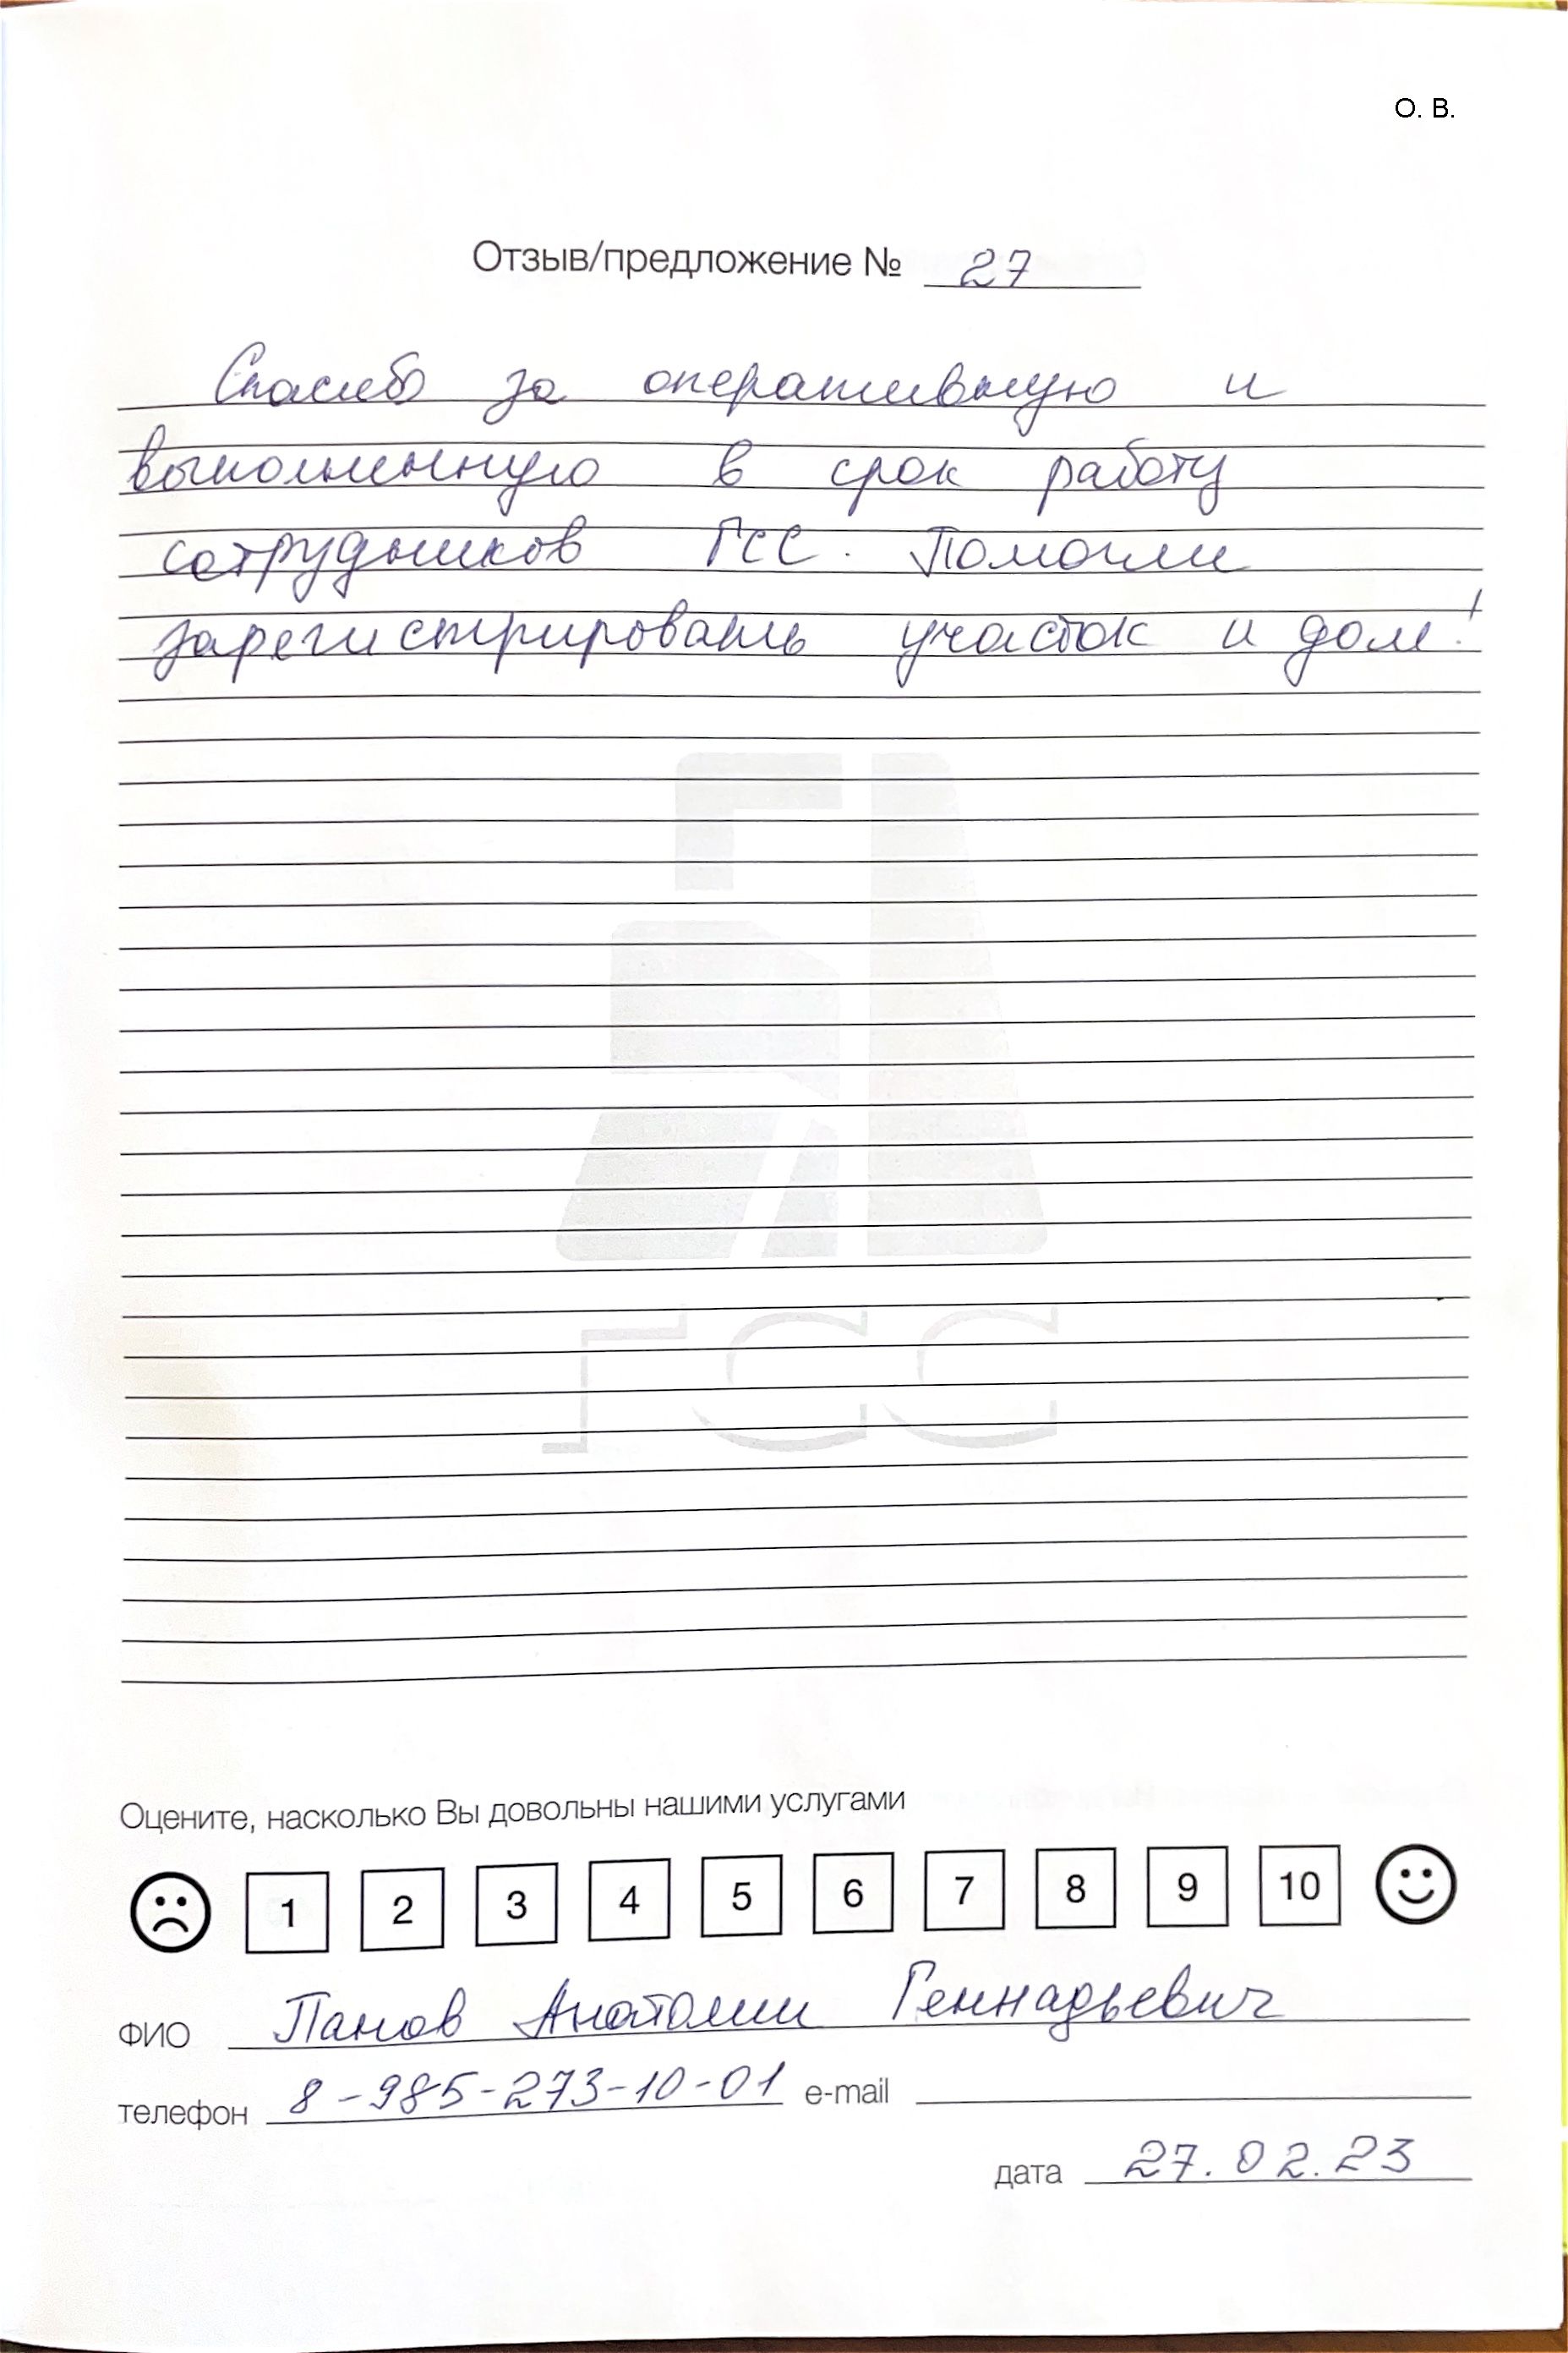 О. В.
Отзыв/предложение № 27
Спасибо за оперативную и
выполненную в срок работу
сотрудников ГСС. Помогли
зарегистрировать участок и дом!
ГСС
Оцените, насколько Вы довольны нашими услугами
1 2 3 4 5 6 7 8 9 10
ФИО Панов Анатолии Геннадьевич
телефон 8-985-273-10-01 e-mail
дата 27.02.23